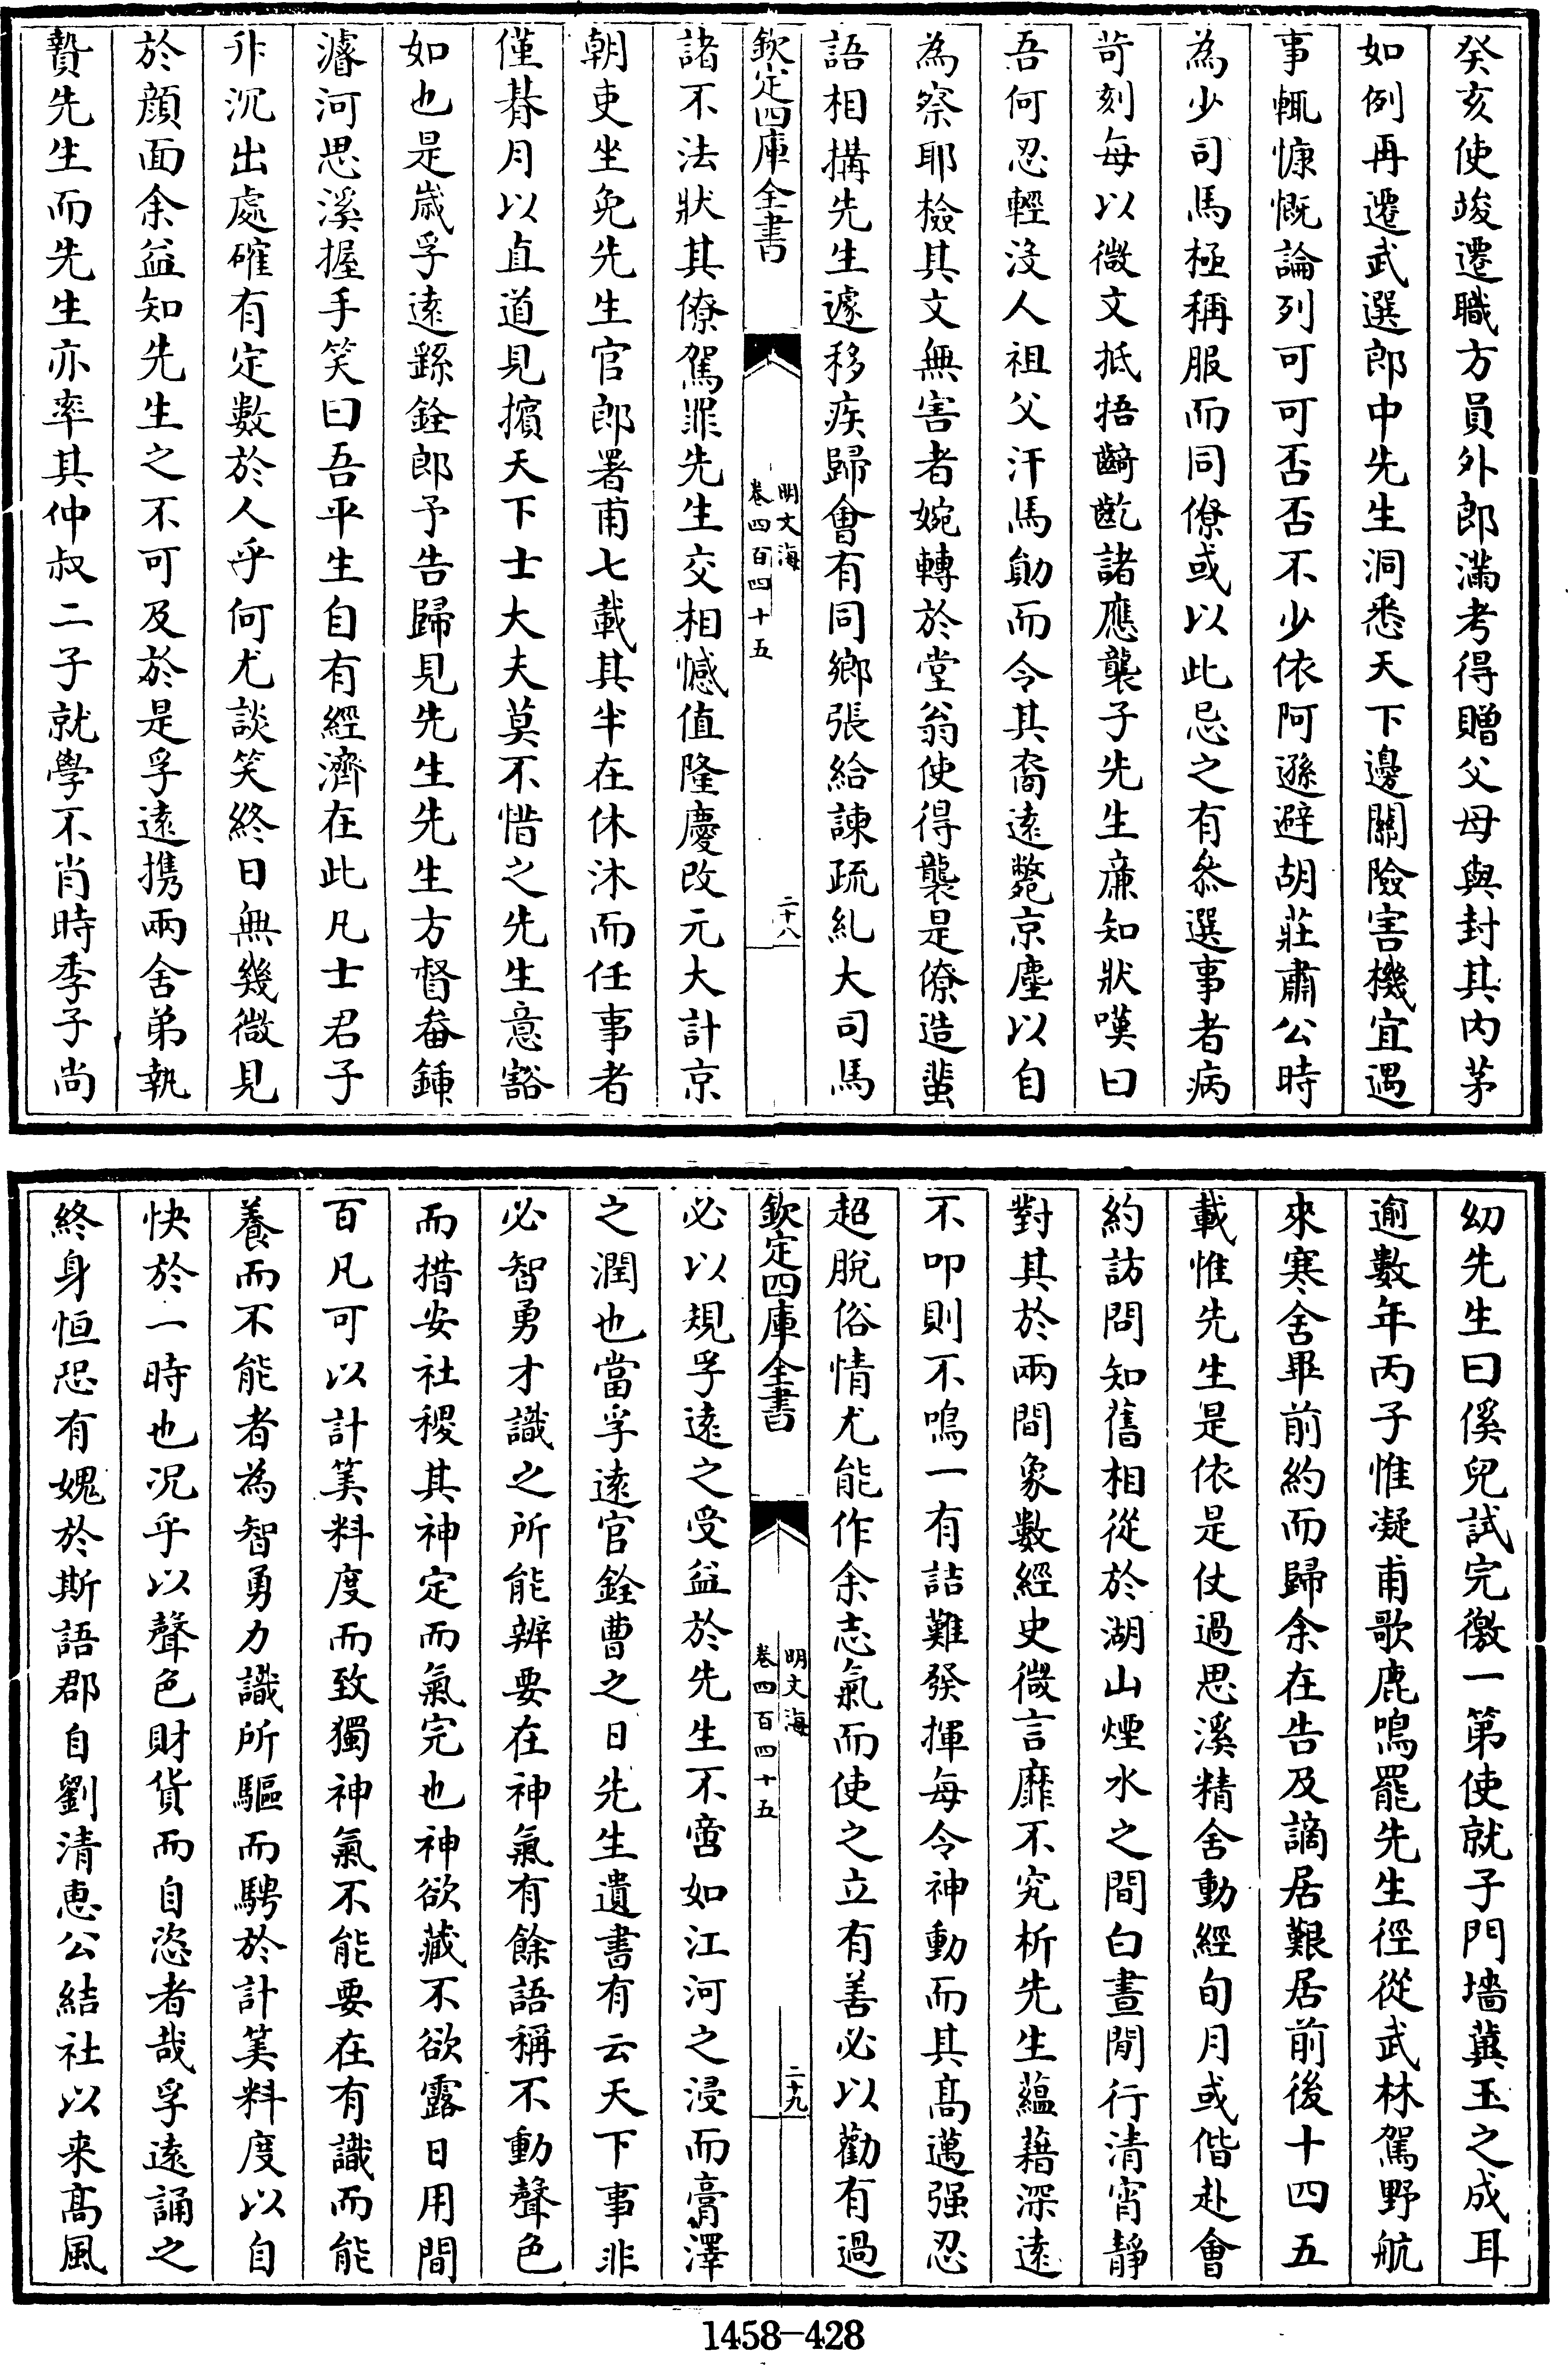 癸亥使竣遷職方員外郎滿考得贈父母與封其内茅
如例再遷武選郎中先生洞悉天下邊關險害機宜遇
事輒慷慨論列可可否否不少依阿遜避胡莊肅公時
為少司馬極稱服而同僚或以此忌之有叅選事者病
苛刻每以微文抵牾齮齕諸應襲子先生亷知狀嘆曰
吾何忍輕沒人祖父汗馬勛而令其裔遠斃京塵以自
為察耶檢其文無害者婉轉於堂翁使得襲是僚造蜚
語相搆先生遽移疾歸會有同鄉張給諫疏糺大司馬
欽定四庫全書
明文海
卷四百四十五
二十八
諸不法狀其僚駕罪先生交相憾值隆慶改元大計京
朝吏坐免先生官郎署甫七載其半在休沐而任事者
僅朞月以直道見擯天下士大夫莫不惜之先生意豁
如也是歲孚遠繇銓郎予告歸見先生先生方督畚鍤
濬河思溪握手笑曰吾平生自有經濟在此凡士君子
升沉出處確有定數於人乎何尤談笑終日無幾微見
於顔面余益知先生之不可及於是孚遠携兩舍弟執
贄先生而先生亦率其仲叔二子就學不肖時季子尚
幼先生曰傒兒試完徼一第使就子門墻冀玉之成耳
逾數年丙子惟凝甫歌鹿鳴罷先生徑從武林駕野航
來寒舍畢前約而歸余在告及謫居艱居前後十四五
載惟先生是依是仗過思溪精舍動經旬月或偕赴會
約訪問知舊相從於湖山煙水之間白晝閒行清宵靜
對其於兩間象數經史微言靡不究析先生蘊藉深遠
不叩則不鳴一有詰難發揮每令神動而其髙邁强忍
超脫俗情尤能作余志氣而使之立有善必以勸有過
欽定四庫全書
明文海
卷四百四十五
二十九
必以規孚遠之受益於先生不啻如江河之浸而膏澤
之潤也當孚遠官銓曹之日先生遺書有云天下事非
必智勇才識之所能辨要在神氣有餘語稱不動聲色
而措安社稷其神定而氣完也神欲藏不欲露日用間
百凡可以計筭料度而致獨神氣不能要在有識而能
養而不能者為智勇力識所驅而騁於計筭料度以自
快於一時也况乎以聲色財貨而自恣者哉孚遠誦之
終身恒恐有媿於斯語郡自劉清惠公結社以來髙風
1458-428